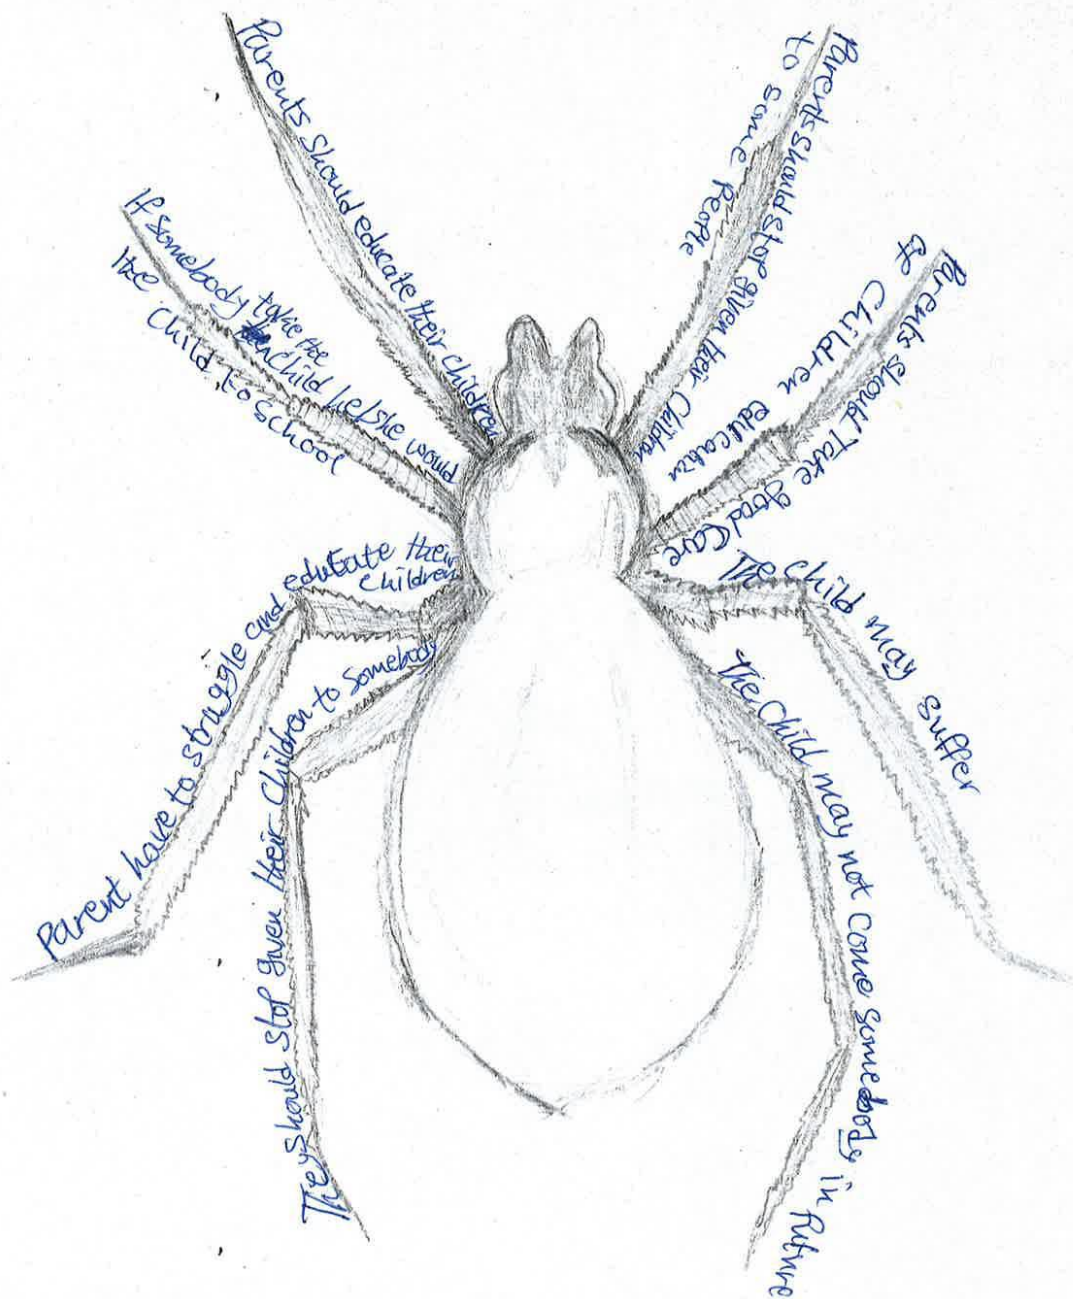 Parents should educate their children
If somebody take the child he/she would
the child to school
Parent have to struggle and educate their
children
They should stop given their children to somebody
Parents should stop given their children
to some people
Parents should take good care
of children education
The child may suffer
The child may not come somebody in future